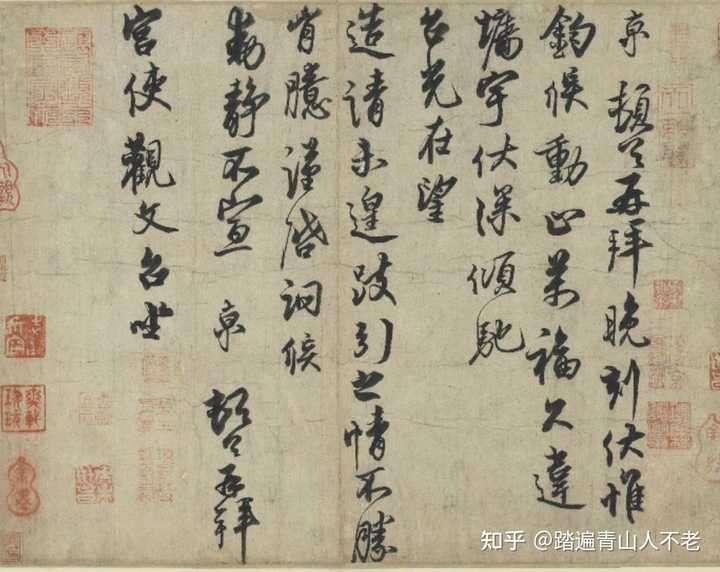 京 頓首再拜晚刻伏惟
鈞候動止萬福久違
墉宇伏深傾馳
台光在望
造請未遑跂引之情不勝
胷臆謹啓詢候
動靜不宣 京 頓首再拜
宮使觀文台坐
知乎 @踏遍青山人不老